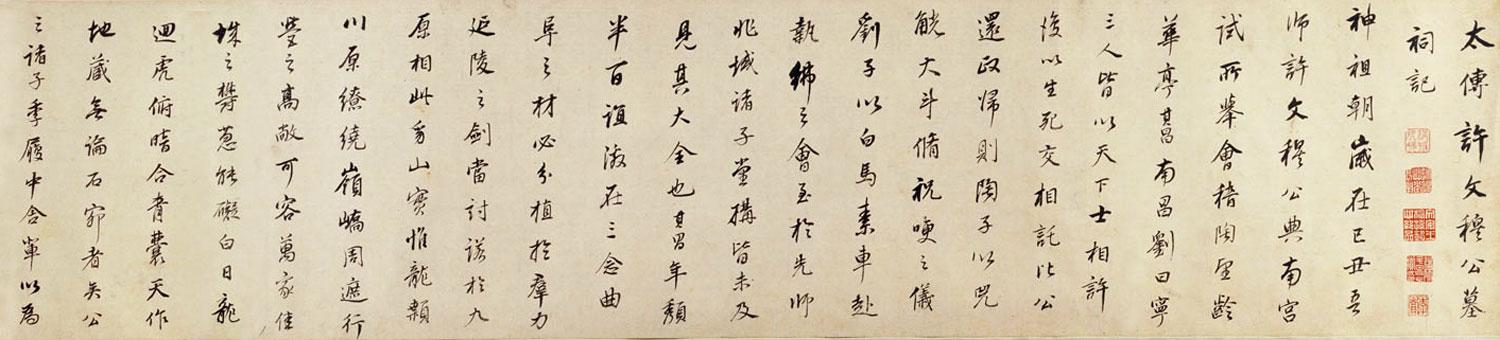 太傅許文穆公墓
祠記
神祖朝歲在己丑吾
師許文穆公典南宮
試所舉會稽陶望齡
華亭其昌南昌劉曰寧
三人皆以天下士相許
後以生死交相託比公
還政歸則陶子以兕
觥大斗脩祝哽之儀
劉子以白馬素車赴
執紼之會至於先師
兆域諸子堂搆皆未及
見其大全也其昌年頹
半百誼激在三念曲
阜之材必分植於羣力
延陵之劍當討諾於九
原相此身山實惟龍類
川原繚繞嶺嶠周遮行
瑩之高敞可容萬家佳
城之欝葱能礙白日龍
迴虎俯暗合青囊天作
地藏無論石窌者矣公
之諸子季履中舍軍以為